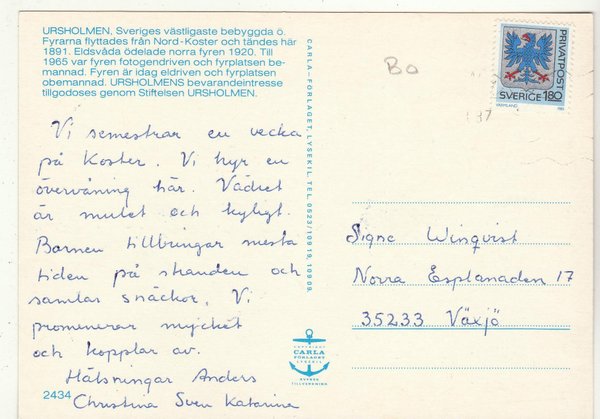 URSHOLMEN. Sveriges västligaste bebyggda ö.
Fyrarna flyttades från Nord-Koster och tändes här
1891. Eldsvåda ödelade norra fyren 1920. Till
1965 var fyren fotogendriven och fyrplatsen be-
mannad. Fyren är idag eldriven och fyrplatsen
obemannad. URSHOLMENS bevarandeintresse
tillgodoses genom Stiftelsen URSHOLMEN.
Vi semestrar en vecka
på Koster. Vi hyr en
övervåning här. Vädret
är mulet och kyligt.
Barnen tillbringar mesta
tiden på stranden och
samlar snäckor. Vi
promenerar mycket
och kopplar av.
Hälsningar Anders
Christina Sven Katarina
2434
CARLA-FÖRLAGET, LYSEKIL. TEL. 0523/10919, 10909.
COPYRIGHT
CARLA
FÖRLAGET
LYSEKIL
SVENSK
TILLVERKNING
BO
PRIVATPOST
SVERIGE 180
VÄRMLAND
87
Signe Winqvist
Norra Esplanaden 17
35233 Växjö